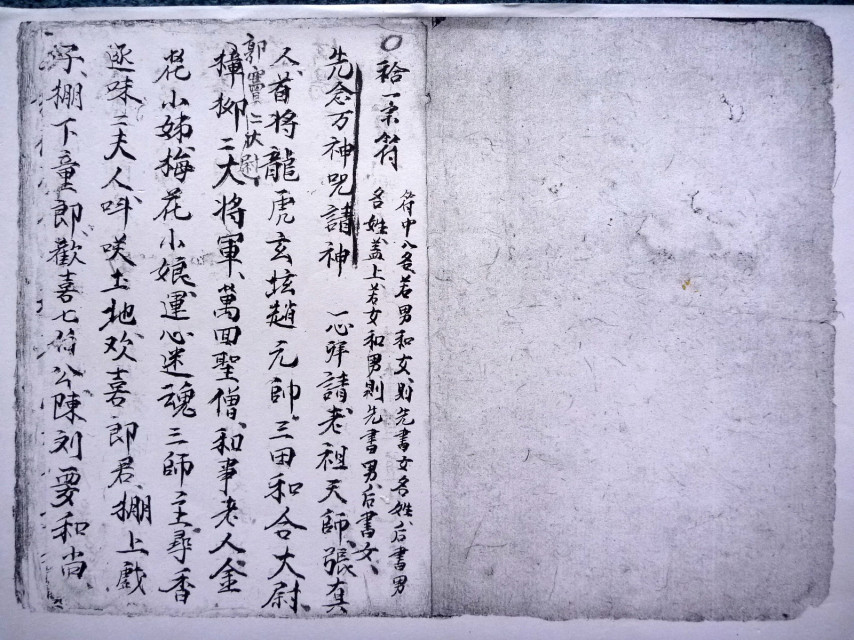 〇袷一条符
符中人各若男和女則先書女名姓后書男
名姓盖上若女和男則先書男后書女
先念万神咒請神 一心拜請老祖天師張真
人首将龍虎玄坛趙元帥三田和合大尉
郭竇二大尉
獐柳二大将軍萬回聖僧和事老人金
花小姊梅花小娘運心迷魂三師主尋香
逐味二夫人叫咲土地欢喜郎君棚上戲
子棚下童郎歡喜七伯公陳刘要和尚